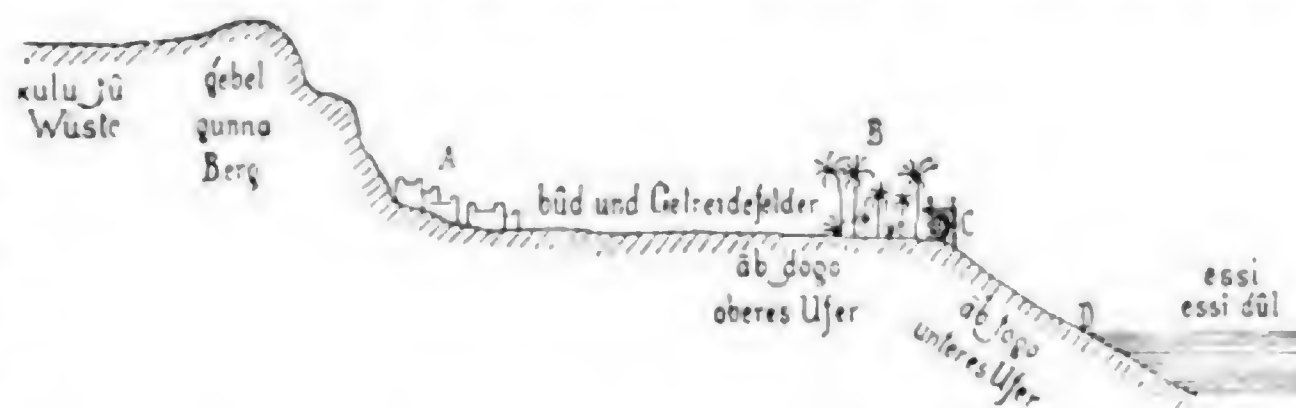 kulu jû
Wüste
gebel
gunna
Berg
A
bûd und Getreidefelder
B
C
āb dogo
oberes Ufer
āb togo
unteres Ufer
D
essi
essi dûl